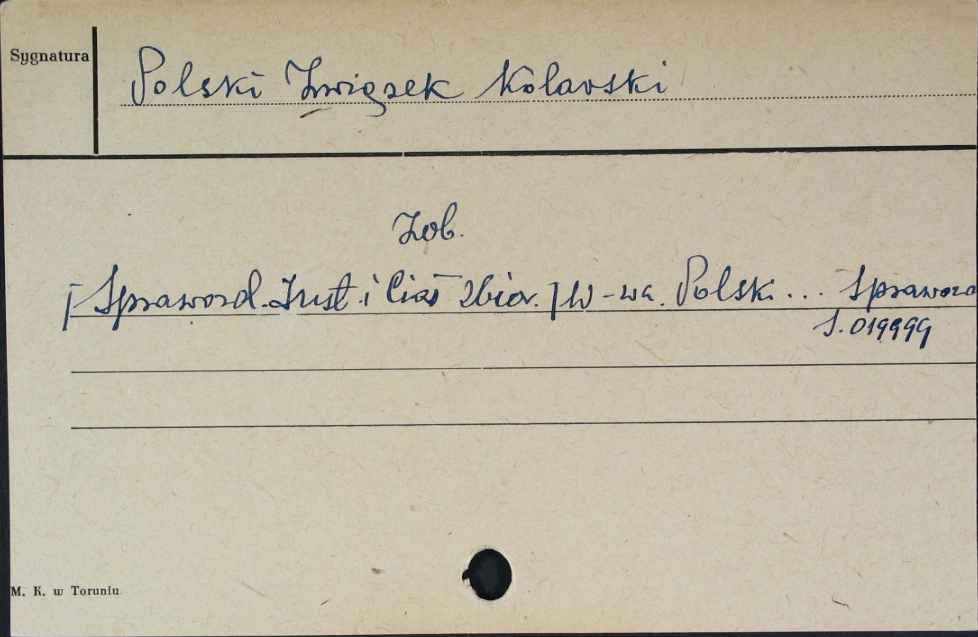 Sygnatura
Polski Związek Kolarski
Zob.
[Sprawozd. Inst. i Ciał zbior.] W-wa. Polski... Sprawozd
S. 019999
M. K. w Toruniu